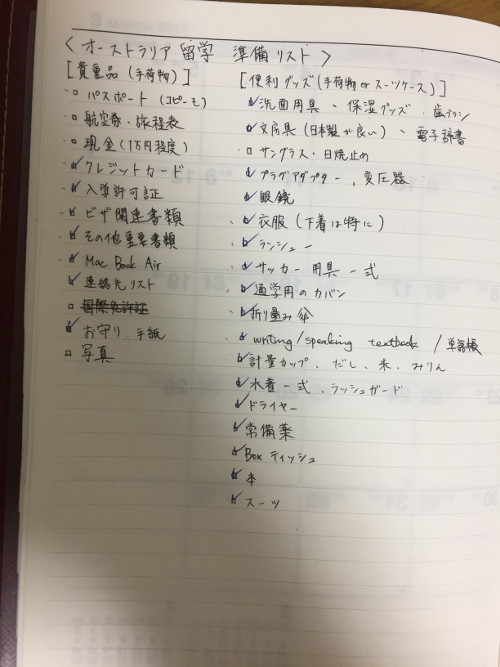 ＜オーストラリア留学 準備リスト＞
[貴重品（手荷物）]
パスポート（コピーも）
航空券・旅程表
現金（1万円程度）
クレジットカード
入学許可証
ビザ関連書類
その他重要書類
Mac Book Air
連絡先リスト
国際免許証
お守り、手紙
写真
[便利グッズ（手荷物orスーツケース）]
洗面用具・保湿グッズ・歯ブラシ
文房具（日本製が良い）、電子辞書
サングラス・日焼止め
プラグアダプター、変圧器
眼鏡
衣服（下着は特に）
ランシュー
サッカー用具一式
通学用のカバン
折り畳み傘
writing/speaking textbook /単語帳
計量カップ、だし、米、みりん
水着一式、ラッシュガード
ドライヤー
常備薬
Box ティッシュ
本
スーツ